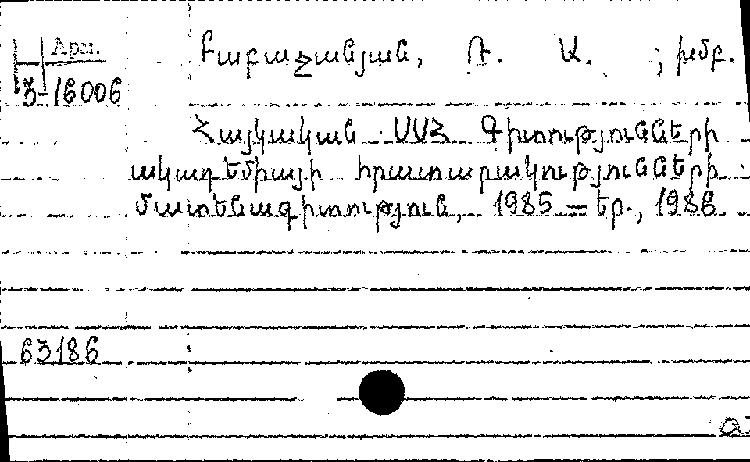 Арм.
3-16006
Բաբաջանյան, Ռ. Ա. ; խմբ.
Հայկական ՍՍՀ Գիտությունների
ակադեմիայի հրատարակությունների
մատենագիտություն, 1985 = Եր., 1986
63186